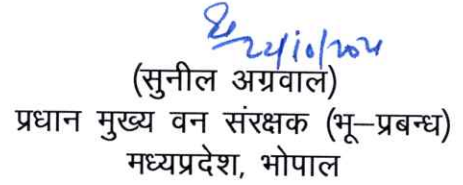 22/10/2021
(सुनील अग्रवाल)
प्रधान मुख्य वन संरक्षक (भू–प्रबन्ध)
मध्यप्रदेश, भोपाल